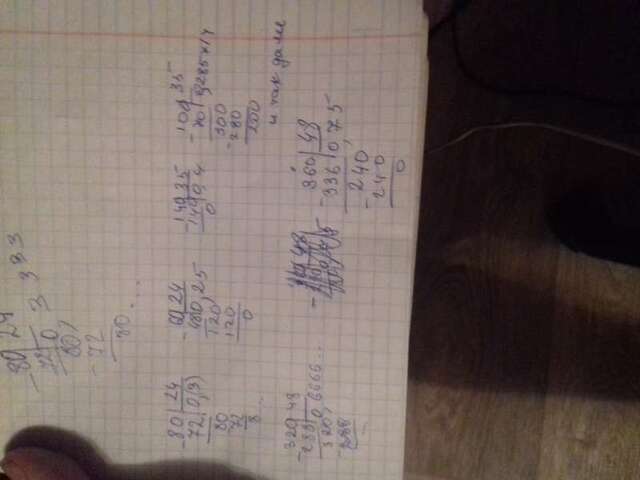 80 24
72 0, 3 333
80
-72
80 ...
-80 24
72 0,(3)
80
72
8...
-60 24
48 0,25
120
120
0
-140 35
140 0,4
0
-100 35
70 0,285
300
-280
200
и так далее
-320 48
288 0,6666...
320
-288
-360 48
336 0,75
-240
240
0